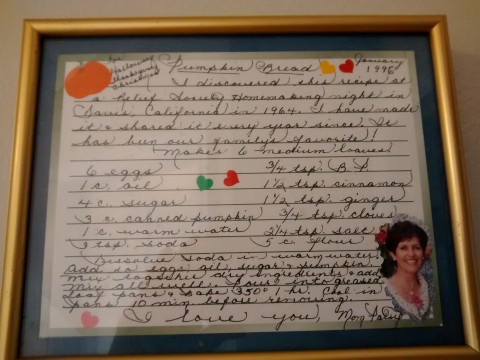 for Halloween
Thanksgiving
Christmas
Pumpkin Bread
January
1998
I discovered this recipe at
a Relief Society Homemaking night in
Davis, California in 1964. I have made
it & shared it every year since. It
has been our family's favorite!
Makes 6 medium loaves
6 eggs 3/4 tsp. B.P.
1 c. oil 1 1/2 tsp. cinnamon
4 c. sugar 1 1/2 tsp. ginger
3 c. canned pumpkin 3/4 tsp. cloves
1 c. warm water 2 1/4 tsp. salt
3 tsp. soda 5 c. flour
Dissolve soda in warm water.
Add to eggs, oil, sugar & pumpkin.
Mix together dry ingredients & add.
Mix all well & pour into greased
loaf pans & bake 350° 1 hr. Cool in
pans 10 min. before removing.
I love you, Mom